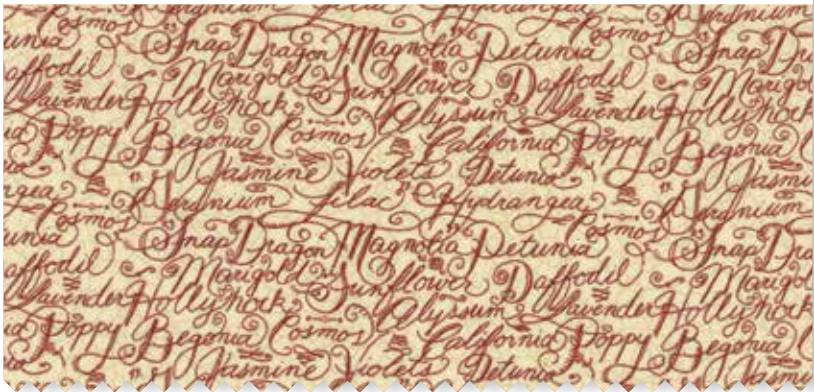 Cosmos Geranium
Petunia Snap Dragon Magnolia Petunia Snap Dra
affodil Marigold Sunflower Daffodil Marigold
Lavender Hollyhock Alyssum Lavender Hollyhock
Poppy Begonia Cosmos California Poppy Begonia
Jasmine Violets Petunia Jasmi
ngea Geranium Lilac Hydrangea Geranium
Cosmos Cosmos
unia Snap Dragon Magnolia Petunia Snap Dra
affodil Marigold Sunflower Daffodil Marigold
Lavender Hollyhock Alyssum Lavender Hollyhock
Poppy Begonia Cosmos California Poppy Begonia
Jasmine Violets Petunia Jasmi